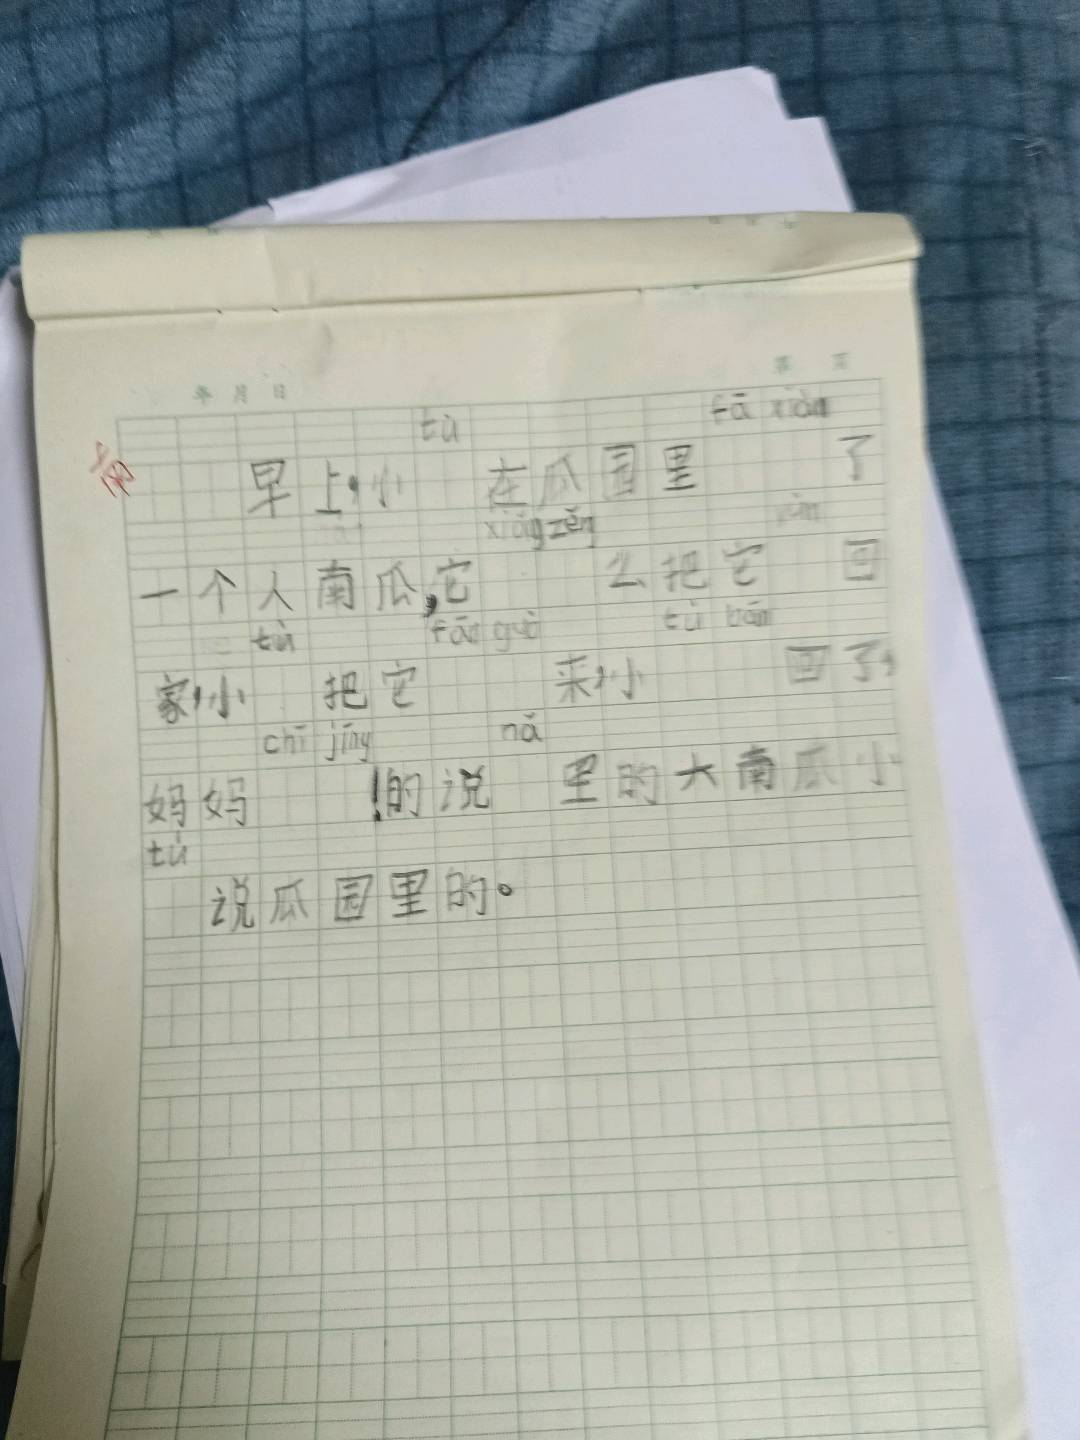 年 月 日 第 页
tù fā xiàn
南
早上,小 在瓜园里 了
xiǎng zěn yùn
一个人南瓜,它 么把它 回
tù fān guò tù bān
家,小 把它 来,小 回了,
chī jīng nǎ
妈妈 !的说 里的大南瓜小
tù
说瓜园里的。